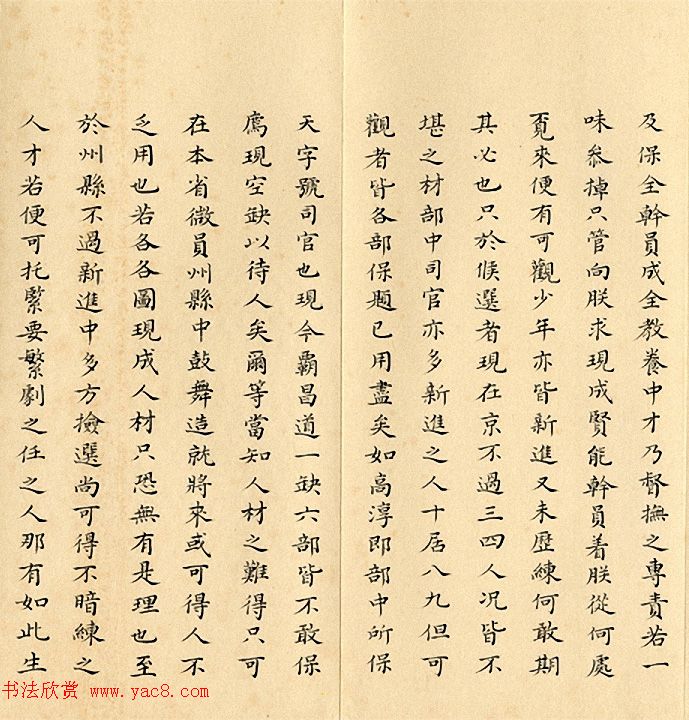 及保全幹員成全教養中才乃督撫之專責若一
味叅掉只管向朕求現成賢能幹員着朕從何處
覔來便有可觀少年亦皆新進又未歷練何敢期
其必也只於候選者現在京不過三四人况皆不
堪之材部中司官亦多新進之人十居八九但可
觀者皆各部保題已用盡矣如高淳即部中所保
天字號司官也現今霸昌道一缺六部皆不敢保
薦現空缺以待人矣爾等當知人材之難得只可
在本省微員州縣中鼓舞造就將來或可得人不
乏用也若各各圖現成人材只恐無有是理也至
於州縣不過新進中多方撿選尚可得不暗練之
人才若便可托緊要繁劇之任之人那有如此生
书法欣赏 www.yac8.com